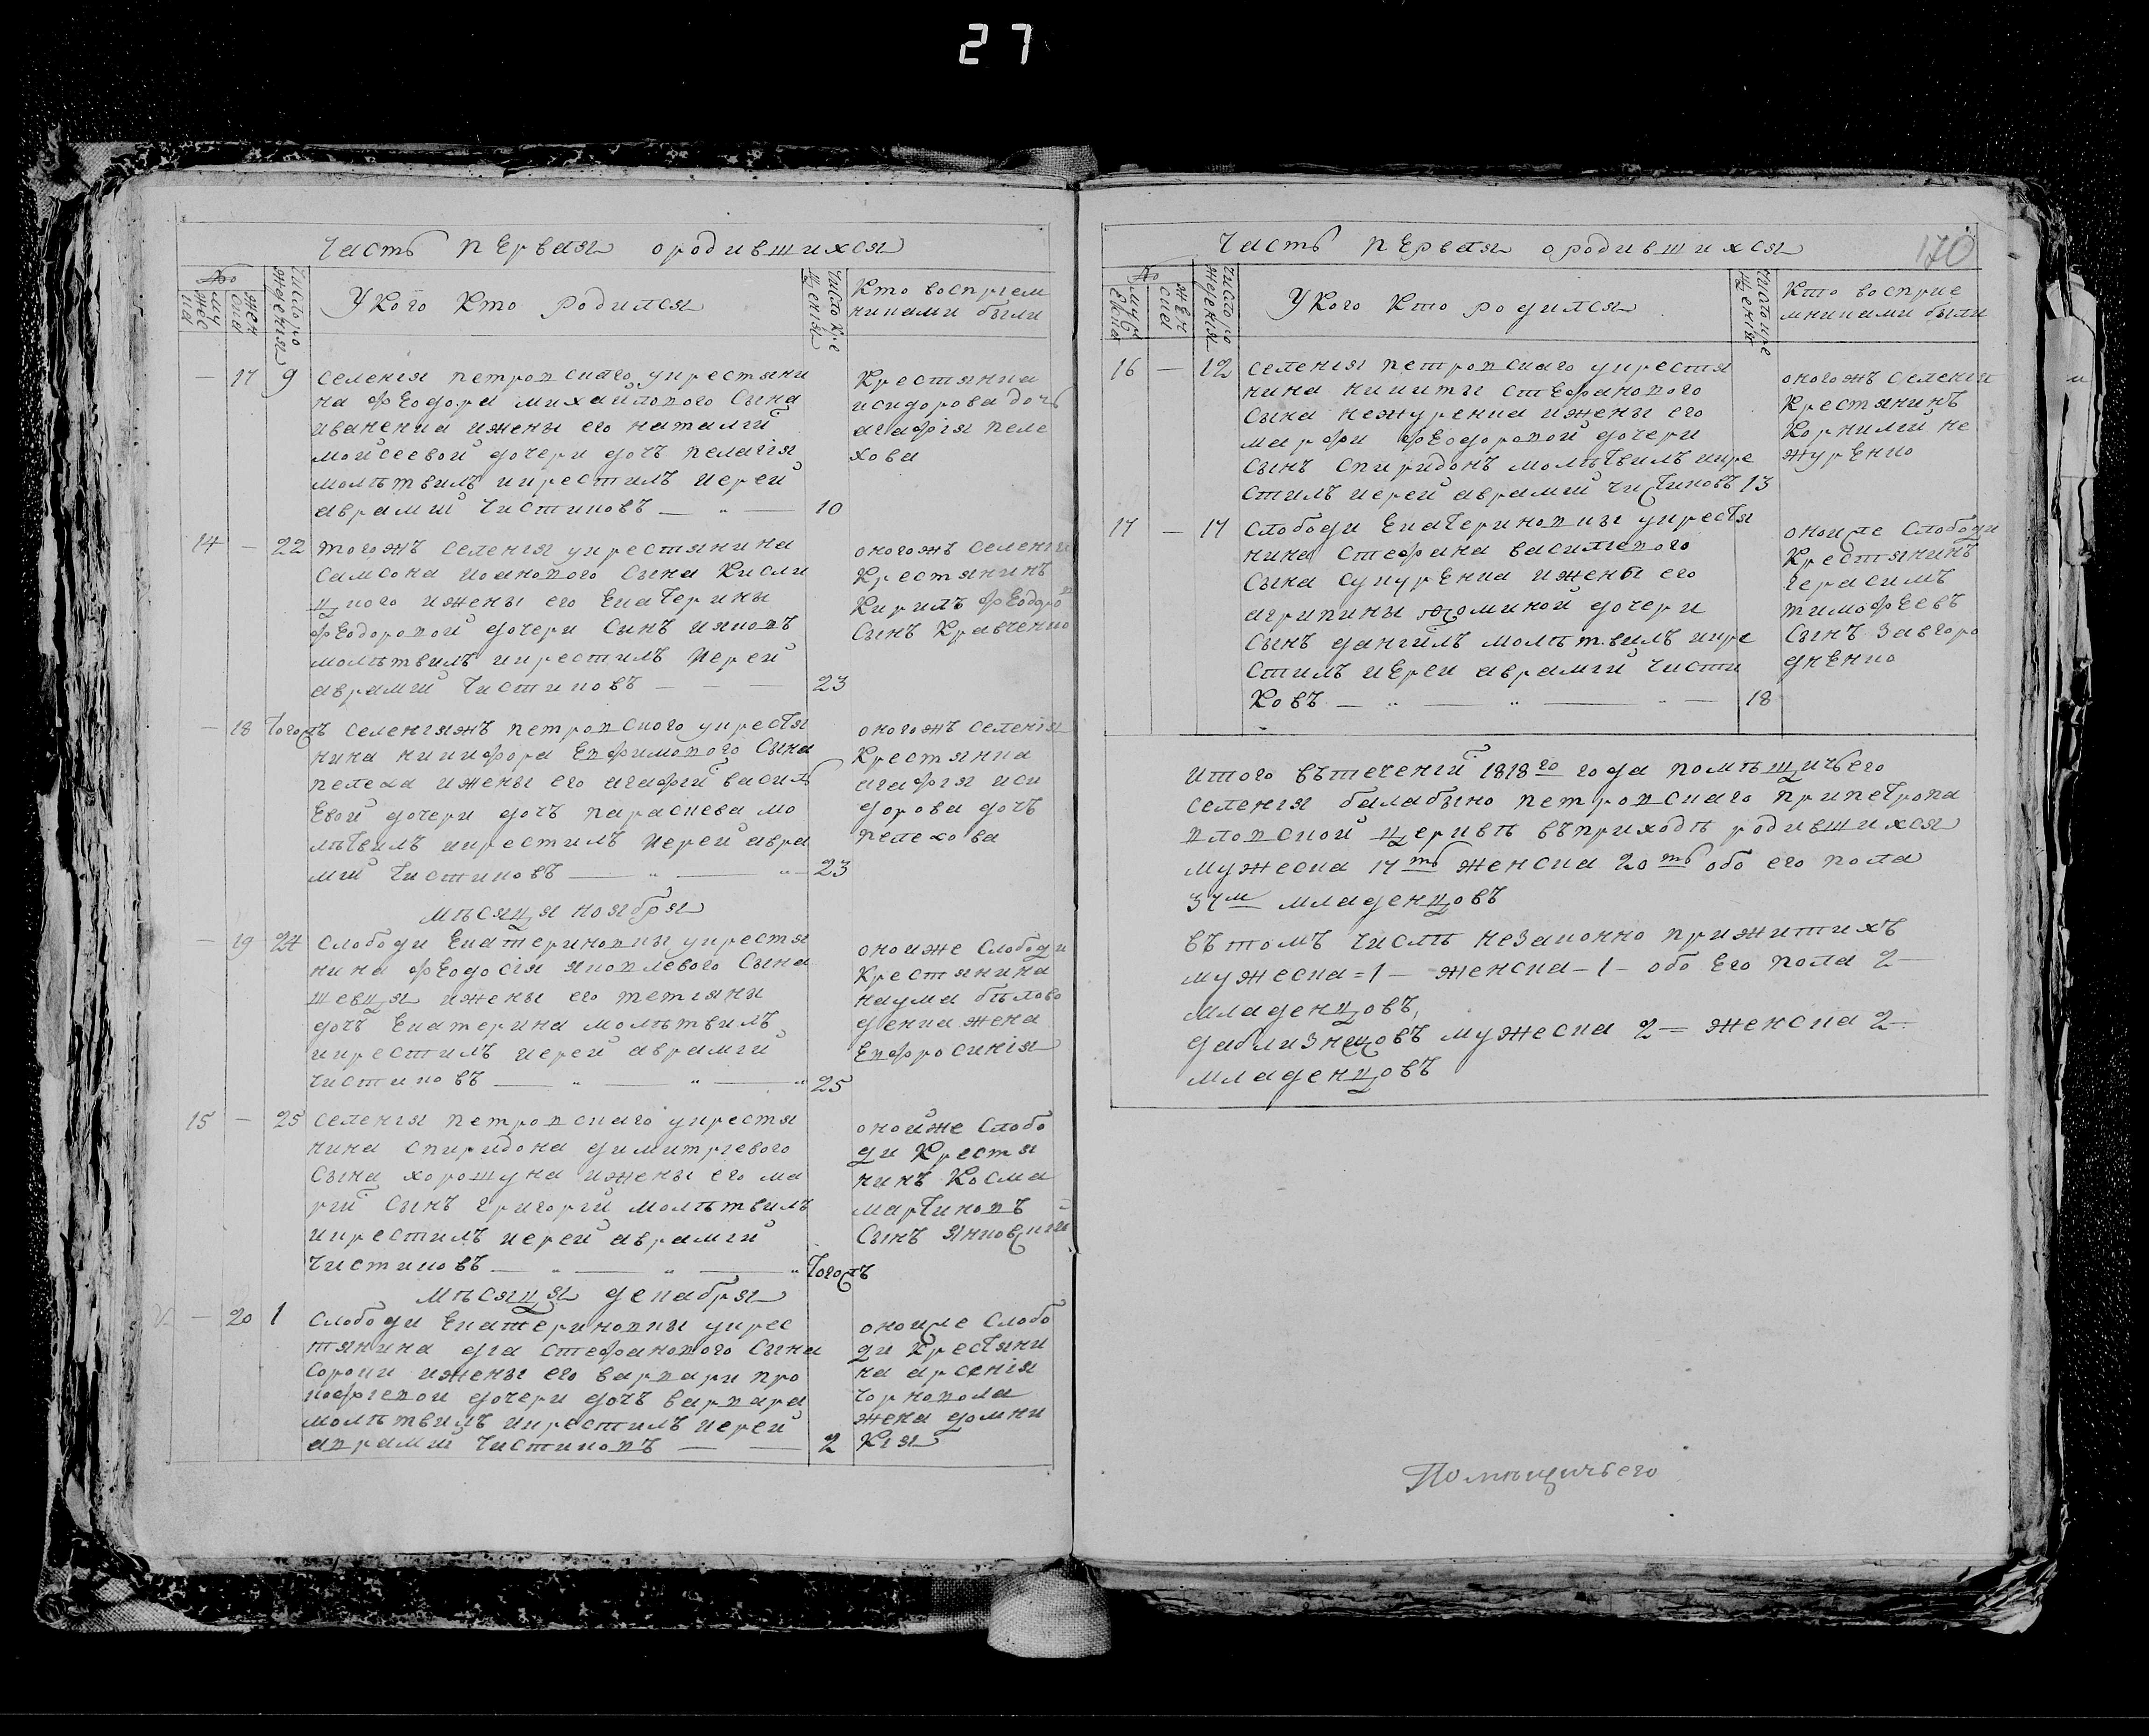 27
Часть первая ородившихся
№
муж
жес
ка
жен
ска
Число ро
жденія
У кого Кто родился
Число кре
щенія
Кто воспріем
никами были
— 17 9 селенія петровскаго укрестяни
на феодора михайлового Сына
иваненка ижены его наталіи
мойсеевой дочери дочъ пелагія
молѣтвилъ икрестилъ иерей
аврамій Чистиковъ — " — 10
Крестянка
исидорова дочь
агафія пеле
хова
14 — 22 тогожъ селенія укрестянина
самсона иоанового Сына Кисли
чного ижены его Екатерины
феодоровой дочери Сынъ ияковъ
молѣтвилъ икрестилъ Иерей
аврамій Чистиковъ — — — 23
оногожъ селенія
Крестянинъ
Кирилъ феодоров
Сынъ Кравченко
— 18 Тогожъ селеніяжъ петровского укрестя
нина никифора Евфимового Сына
пелеха ижены его агафіи василь
Евой дочери дочъ параскева мо
лѣтвилъ икрестилъ Иерей авра
мій Чистиковъ — " — " — 23
оногожъ селенія
Крестянка
агафія иси
дорова дочъ
пелехова
мѣсяца ноября
— 19 24 Слободи Екатериновки укрестя
нина феодосія яковлевого Сына
шевця ижены его тетіяни
дочъ Екатерина молѣтвилъ
икрестилъ иерей аврамій
Чистиковъ — " — " — " 25
онойже Слободи
Крестянина
наума бѣлово
денка жена
Евфросинія
15 — 25 селенія петровскаго укрестя
нина спиридона димитріевого
Сына хорошуна ижены его ма
ріи Сынъ Григорій молѣтвилъ
икрестилъ иерей аврамій
Чистиковъ — " — " — " Тогожъ
онойже Слобо
ди Крестя
нинъ Косма
мартиновъ
Сынъ Янковскій
мѣсяця декабря
— 20 1 Слободи Екатериновки укрес
тянина ... стефанового Сына
сороки ижены его варвари про
кофіевой дочери дочъ варвара
молѣтвилъ икрестилъ иерей
аврамій Чистиковъ — — 2
онойже Слобо
ди Крестяни
на арсенія
Чорновола
жена домни
Кія
Часть первая ородившихся
170
№
мужеска
женска
Число ро
жденія
У кого Кто родился
Число кре
щенія
Кто воспріе
мниками были
16 — 12 селенія петровскаго укрестя
нина никити стефанового
Сына нежуренка ижены его
марфи феодоровой дочери
Сынъ спиридонъ молѣтвилъ икре
стилъ иерей аврамій Чистиковъ 13
оногожъ селенія
Крестянинъ
Корнилій не
журенко
17 — 17 Слободи Екатериновки укрестя
нина Стефана василіевого
Сына сукуренка ижены его
агрипины фоминой дочери
Сынъ даніилъ молѣтвилъ икре
стилъ иереи аврамій Чисти
Ковъ — " — " — " — 18
онойже Слободи
Крестянинъ
герасимъ
тимофеевъ
Сынъ Завгоро
дненко
итого вътеченіи 1818го года помѣщичьего
селенія балабыно петровскаго припетропа
вловской церивѣ въприходѣ родившихся
мужеска 17ть женска 20ть обо его пола
37м младенцовъ
вътомъ Числѣ незаконно прижитихъ
мужеска=1— женска—1— обо Его пола 2—
младенцовъ,
даблизнецовъ мужеска 2= женска 2=
младенцовъ
Помѣщичьего